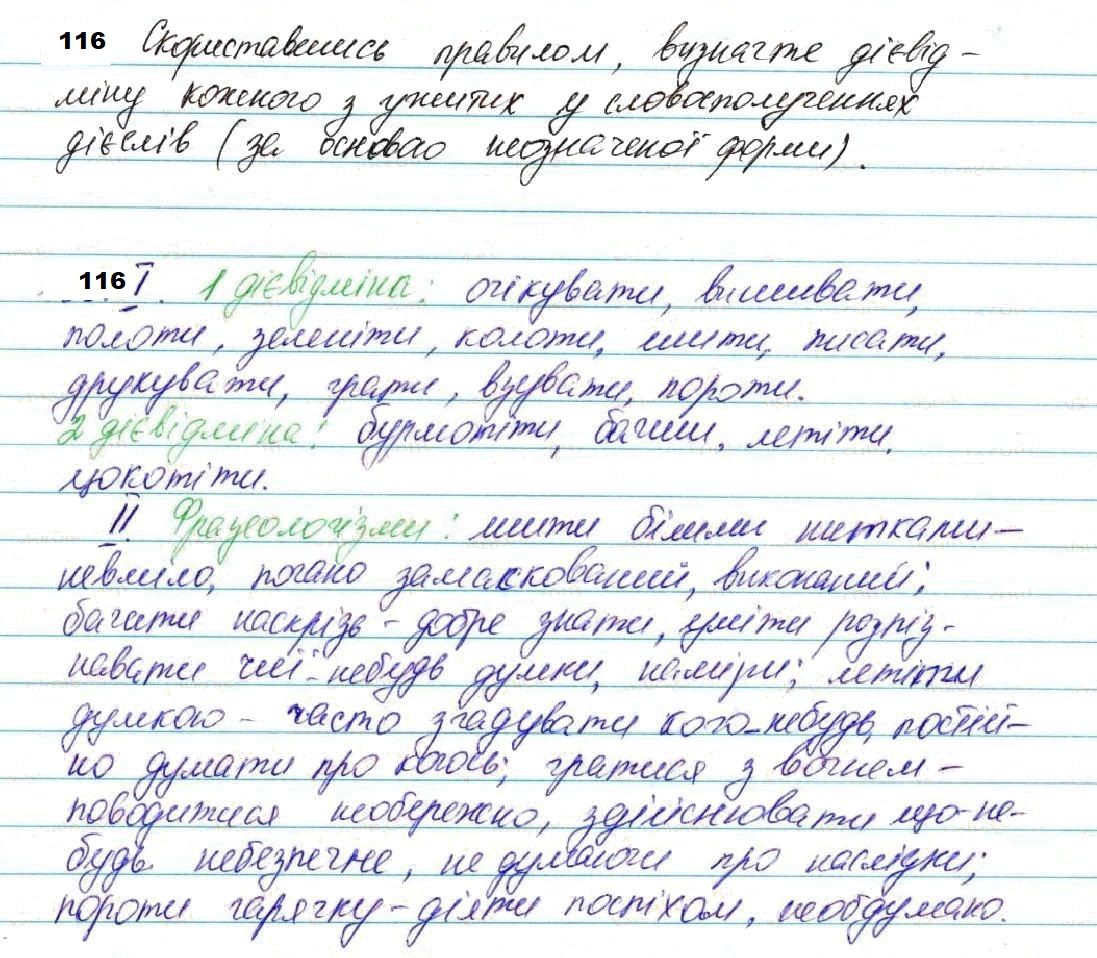 116 Скориставшись правилом, визначте дієвід-
міну кожного з ужитих у словосполученнях
дієслів (за основою неозначеної форми).
116 I. 1 дієвідміна: очікувати, вишивати,
полоти, зеленіти, колоти, шити, писати,
друкувати, грати, взувати, пороти.
2 дієвідміна: бурмотіти, бачити, летіти,
цокотіти.
II. Фразеологізми: шити білими нитками –
невміло, погано замаскований, виконаний;
бачити наскрізь – добре знати, уміти розпіз-
навати чиї-небудь думки, наміри; летіти
думкою – часто згадувати кого-небудь, постій-
но думати про когось; гратися з вогнем –
поводитися необережно, здійснювати що-не-
будь небезпечне, не думаючи про наслідки;
пороти гарячку – діяти поспіхом, необдумано.